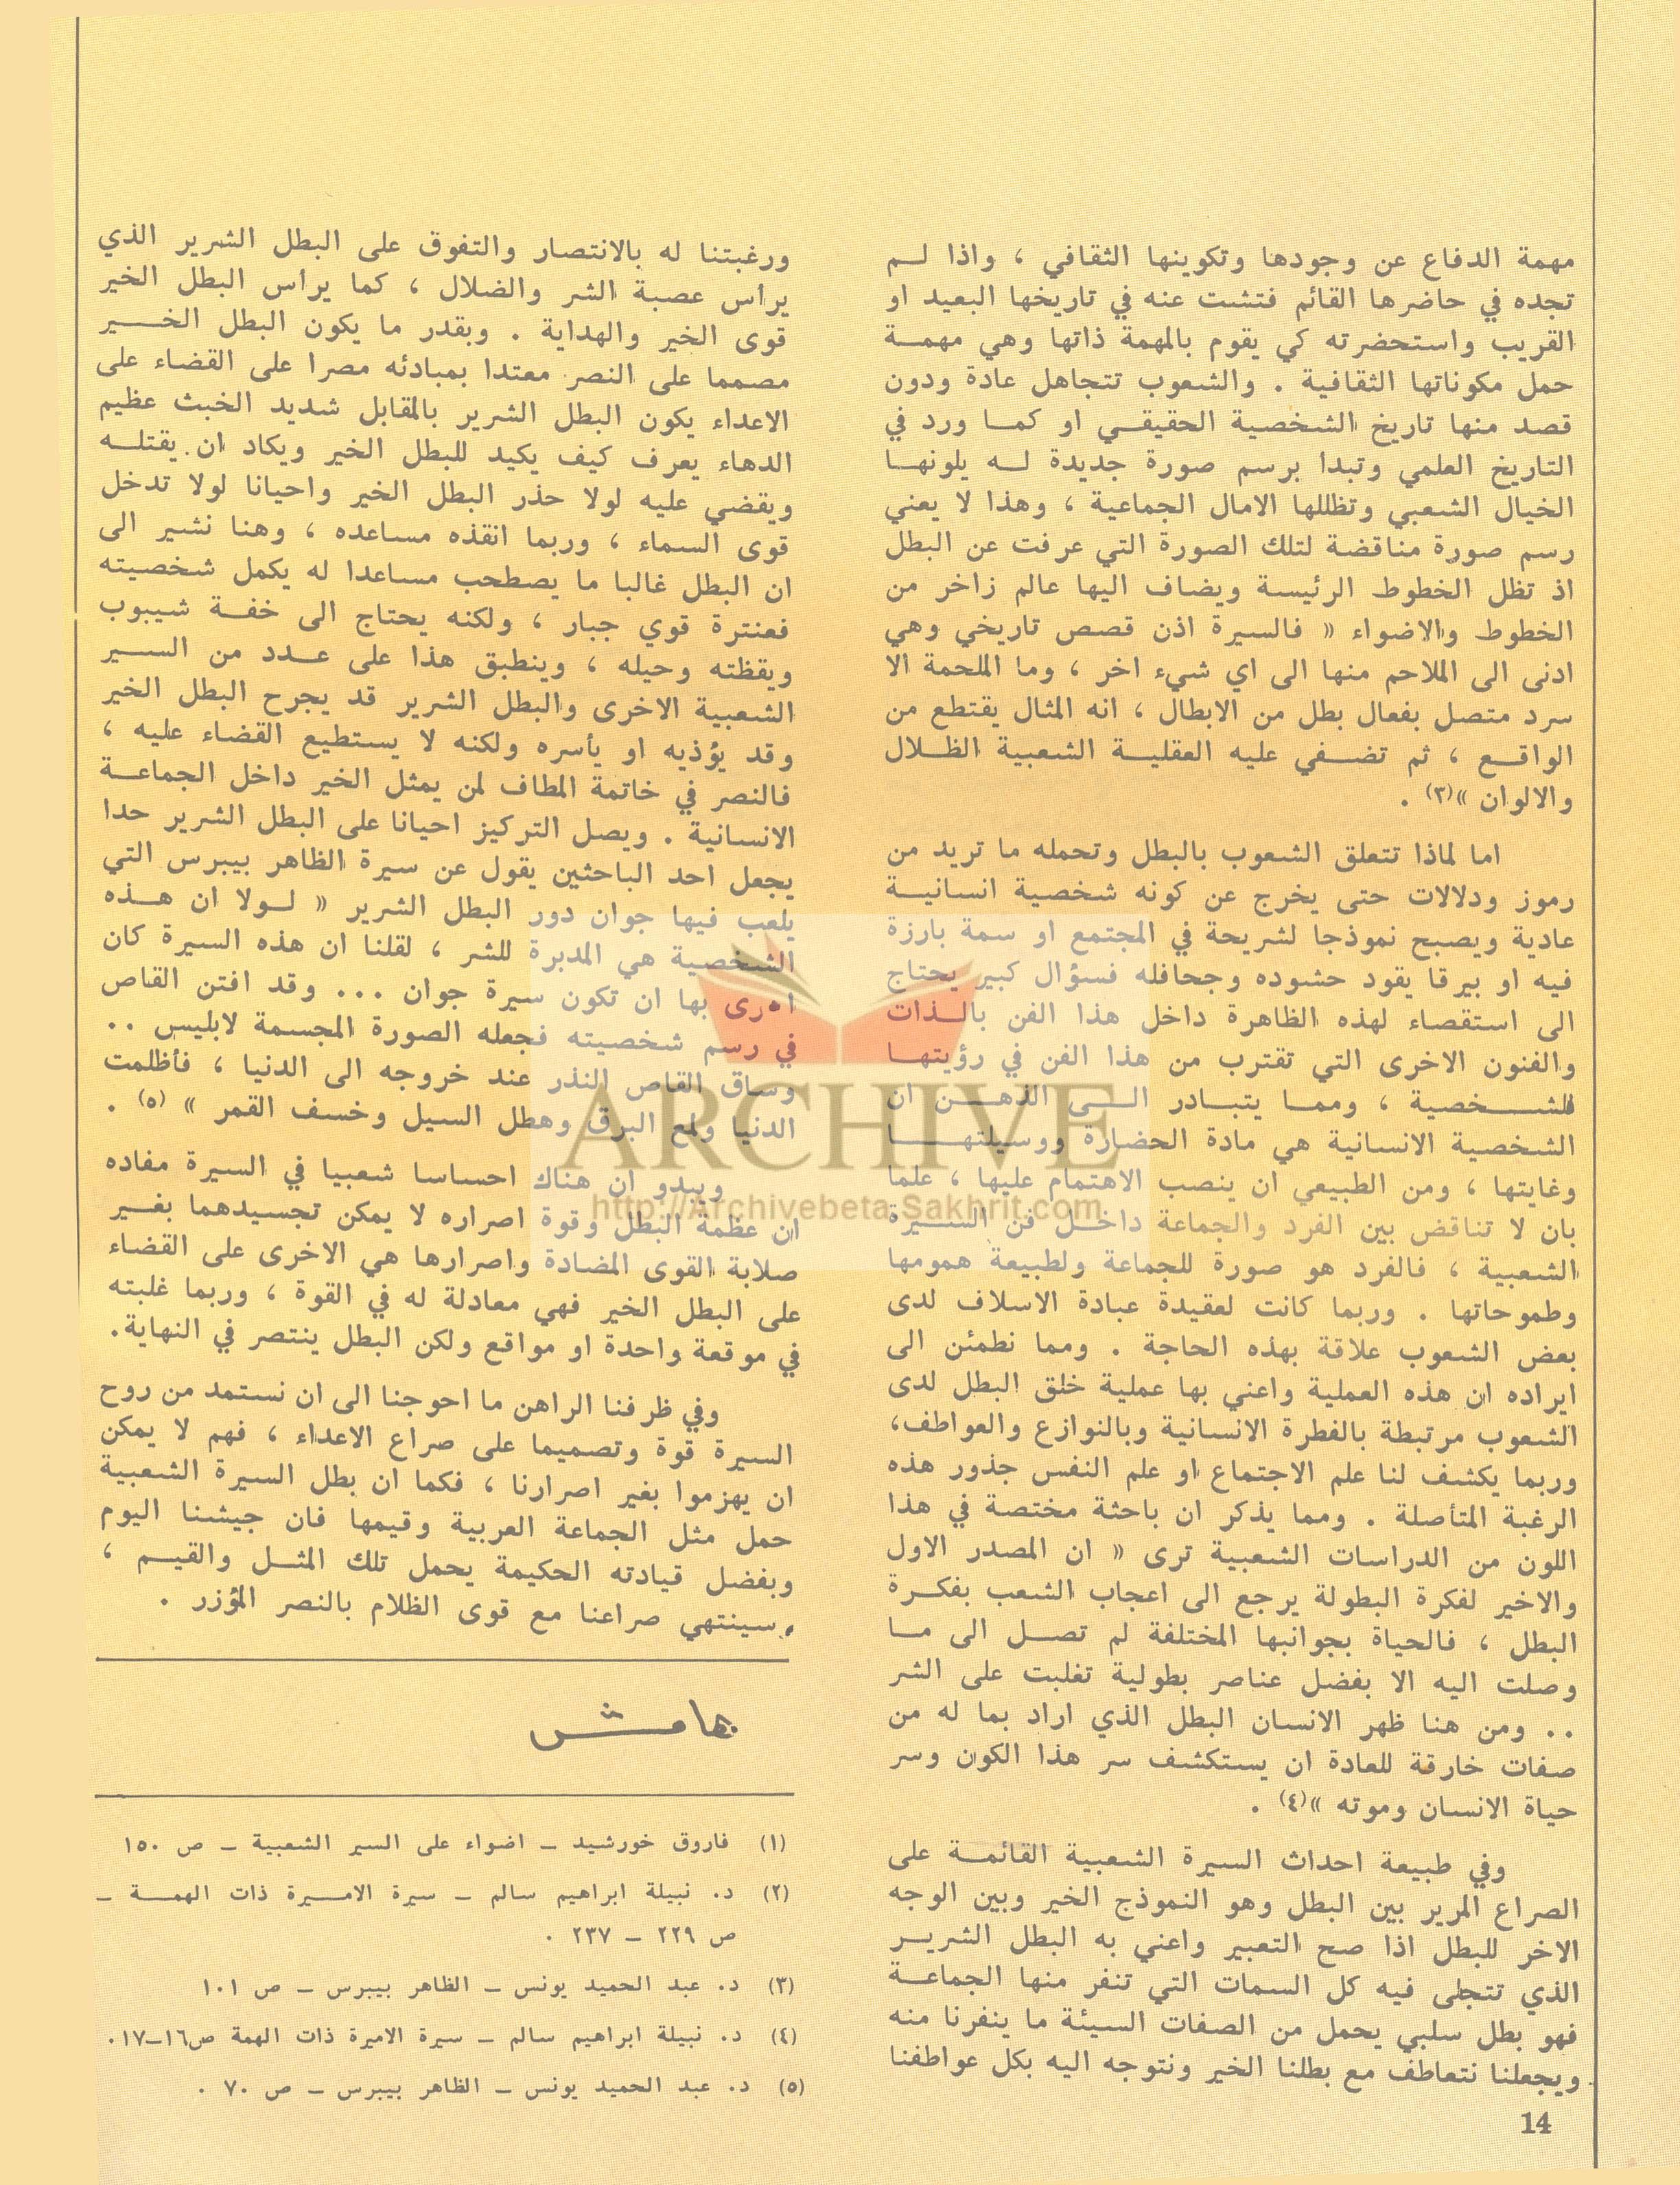 مهمة الدفاع عن وجودها وتكوينها الثقافي ، واذا لم
تجده في حاضرها القائم فتشت عنه في تاريخها البعيد او
القريب واستحضرته كي يقوم بالمهمة ذاتها وهي مهمة
حمل مكوناتها الثقافية . والشعوب تتجاهل عادة ودون
قصد منها تاريخ الشخصية الحقيقي او كما ورد في
التاريخ العلمي وتبدا برسم صورة جديدة له يلونها
الخيال الشعبي وتظللها الامال الجماعية ، وهذا لا يعني
رسم صورة مناقضة لتلك الصورة التي عرفت عن البطل
اذ تظل الخطوط الرئيسة ويضاف اليها عالم زاخر من
الخطوط والاضواء « فالسيرة اذن قصص تاريخي وهي
ادنى الى الملاحم منها الى اي شيء اخر ، وما الملحمة الا
سرد متصل بفعال بطل من الابطال ، انه المثال يقتطع من
الواقع ، ثم تضفي عليه العقلية الشعبية الظلال
والالوان »(٣) .
اما لماذا تتعلق الشعوب بالبطل وتحمله ما تريد من
رموز ودلالات حتى يخرج عن كونه شخصية انسانية
عادية ويصبح نموذجا لشريحة في المجتمع او سمة بارزة
فيه او بيرقا يقود حشوده وجحافله فسؤال كبير يحتاج
الى استقصاء لهذه الظاهرة داخل هذا الفن بالذات
والفنون الاخرى التي تقترب من هذا الفن في رؤيتها
للشخصية ، ومما يتبادر الى الذهن ان
الشخصية الانسانية هي مادة الحضارة ووسيلتها
وغايتها ، ومن الطبيعي ان ينصب الاهتمام عليها ، علما
بان لا تناقض بين الفرد والجماعة داخل فن السيرة
الشعبية ، فالفرد هو صورة للجماعة ولطبيعة همومها
وطموحاتها . وربما كانت لعقيدة عبادة الاسلاف لدى
بعض الشعوب علاقة بهذه الحاجة . ومما نطمئن الى
ايراده ان هذه العملية واعني بها عملية خلق البطل لدى
الشعوب مرتبطة بالفطرة الانسانية وبالنوازع والعواطف،
وربما يكشف لنا علم الاجتماع او علم النفس جذور هذه
الرغبة المتأصلة . ومما يذكر ان باحثة مختصة في هذا
اللون من الدراسات الشعبية ترى « ان المصدر الاول
والاخير لفكرة البطولة يرجع الى اعجاب الشعب بفكرة
البطل ، فالحياة بجوانبها المختلفة لم تصل الى ما
وصلت اليه الا بفضل عناصر بطولية تغلبت على الشر
.. ومن هنا ظهر الانسان البطل الذي اراد بما له من
صفات خارقة للعادة ان يستكشف سر هذا الكون وسر
حياة الانسان وموته »(٤) .
وفي طبيعة احداث السيرة الشعبية القائمة على
الصراع المرير بين البطل وهو النموذج الخير وبين الوجه
الاخر للبطل اذا صح التعبير واعني به البطل الشرير
الذي تتجلى فيه كل السمات التي تنفر منها الجماعة
فهو بطل سلبي يحمل من الصفات السيئة ما ينفرنا منه
ويجعلنا نتعاطف مع بطلنا الخير ونتوجه اليه بكل عواطفنا
ورغبتنا له بالانتصار والتفوق على البطل الشرير الذي
يرأس عصبة الشر والضلال ، كما يرأس البطل الخير
قوى الخير والهداية . وبقدر ما يكون البطل الخير
مصمما على النصر معتدا بمبادئه مصرا على القضاء على
الاعداء يكون البطل الشرير بالمقابل شديد الخبث عظيم
الدهاء يعرف كيف يكيد للبطل الخير ويكاد ان يقتله
ويقضي عليه لولا حذر البطل الخير واحيانا لولا تدخل
قوى السماء ، وربما انقذه مساعده ، وهنا نشير الى
ان البطل غالبا ما يصطحب مساعدا له يكمل شخصيته
فعنترة قوي جبار ، ولكنه يحتاج الى خفة شيبوب
ويقظته وحيله ، وينطبق هذا على عدد من السير
الشعبية الاخرى والبطل الشرير قد يجرح البطل الخير
وقد يؤذيه او يأسره ولكنه لا يستطيع القضاء عليه ،
فالنصر في خاتمة المطاف لمن يمثل الخير داخل الجماعة
الانسانية . ويصل التركيز احيانا على البطل الشرير حدا
يجعل احد الباحثين يقول عن سيرة الظاهر بيبرس التي
يلعب فيها جوان دور البطل الشرير « لولا ان هذه
الشخصية هي المدبرة للشر ، لقلنا ان هذه السيرة كان
بها ان تكون سيرة جوان ... وقد افتن القاص
في رسم شخصيته فجعله الصورة المجسمة لابليس ..
وساق القاص النذر عند خروجه الى الدنيا ، فأظلمت
الدنيا ولمع البرق وهطل السيل وخسف القمر » (٥) .
ويبدو ان هناك احساسا شعبيا في السيرة مفاده
ان عظمة البطل وقوة اصراره لا يمكن تجسيدهما بغير
صلابة القوى المضادة واصرارها هي الاخرى على القضاء
على البطل الخير فهي معادلة له في القوة ، وربما غلبته
في موقعة واحدة او مواقع ولكن البطل ينتصر في النهاية.
وفي ظرفنا الراهن ما احوجنا الى ان نستمد من روح
السيرة قوة وتصميما على صراع الاعداء ، فهم لا يمكن
ان يهزموا بغير اصرارنا ، فكما ان بطل السيرة الشعبية
حمل مثل الجماعة العربية وقيمها فان جيشنا اليوم
وبفضل قيادته الحكيمة يحمل تلك المثل والقيم ،
وسينتهي صراعنا مع قوى الظلام بالنصر المؤزر .
هامش
(١) فاروق خورشيد ـ اضواء على السير الشعبية ـ ص ١٥٠
(٢) د. نبيلة ابراهيم سالم ـ سيرة الاميرة ذات الهمة ـ
ص ٢٢٩ ـ ٢٣٧ .
(٣) د. عبد الحميد يونس ـ الظاهر بيبرس ـ ص ١٠١
(٤) د. نبيلة ابراهيم سالم ـ سيرة الاميرة ذات الهمة ص١٦ـ١٧.
(٥) د. عبد الحميد يونس ـ الظاهر بيبرس ـ ص ٧٠ .
14
ARCHIVE
http://Archivebeta.Sakhrit.com